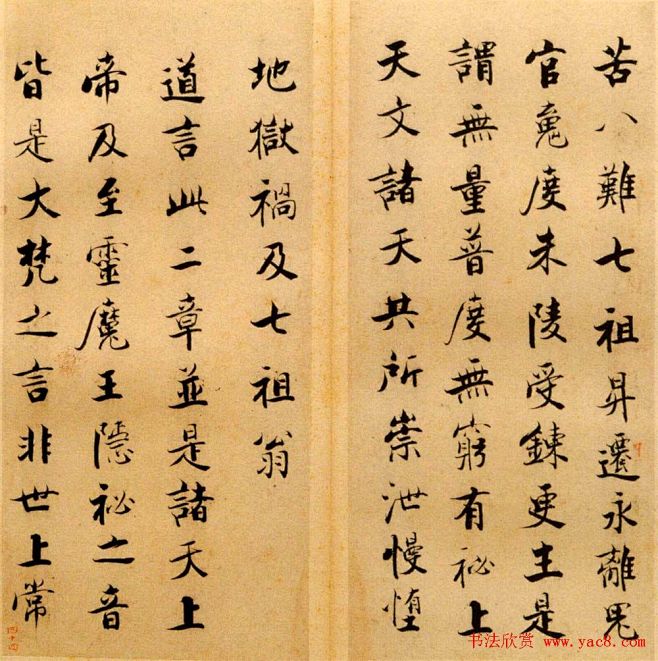 苦八難七祖昇遷永離鬼
官免度朱陵受鍊更生是
謂無量普度無窮有祕上
天文諸天共所崇泄慢墮
地獄禍及七祖翁
道言此二章並是諸天上
帝及至靈魔王隱祕之音
皆是大梵之言非世上常
四十四
书法欣赏 www.yac8.com